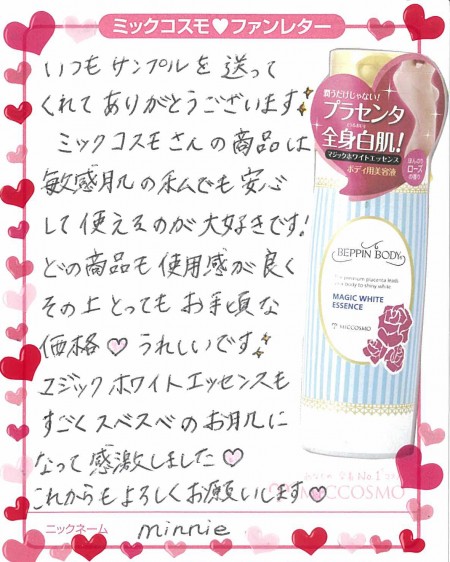 ミックコスモ♥ファンレター
いつもサンプルを送って
くれてありがとうございます
ミックコスモさんの商品は
敏感肌の私でも安心
して使えるのが大好きです!
どの商品も使用感が良く
その上とってもお手頃な
価格♡うれしいです
マジックホワイトエッセンスも
すごくスベスベのお肌に
なって感激しました♡
これからもよろしくお願いします♡
ニックネーム minnie
潤うだけじゃない!
プラセンタ
全身白肌!
マジックホワイトエッセンス
ボディ用美容液
ほんのり
ローズ
の香り
BEPPIN BODY
MAGIC WHITE
ESSENCE
MICCOSMO
No.1
MICCOSMO